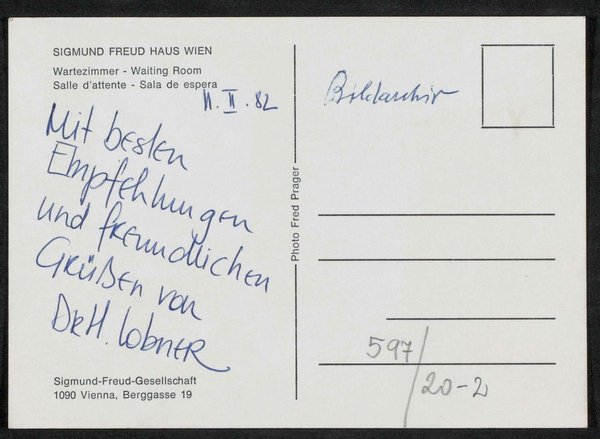 SIGMUND FREUD HAUS WIEN
Wartezimmer - Waiting Room
Salle d'attente - Sala de espera
11. II. 82
Mit besten
Empfehlungen
und freundlichen
Grüßen von
Dr. H. Lobner
Sigmund-Freud-Gesellschaft
1090 Vienna, Berggasse 19
Photo Fred Prager
Bildarchiv
597/
20-2